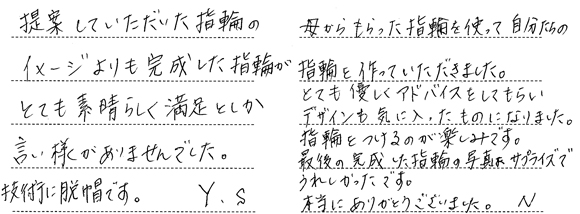 提案していただいた指輪の
イメージよりも完成した指輪が
とても素晴らしく満足としか
言い様がありませんでした。
技術に脱帽です。 Y.S
母からもらった指輪を使って自分たちの
指輪を作っていただきました。
とても優しくアドバイスをしてもらい
デザインも気に入ったものになりました。
指輪をつけるのが楽しみです。
最後の完成した指輪の写真がサプライズで
うれしかったです。
本当にありがとうございました。 N